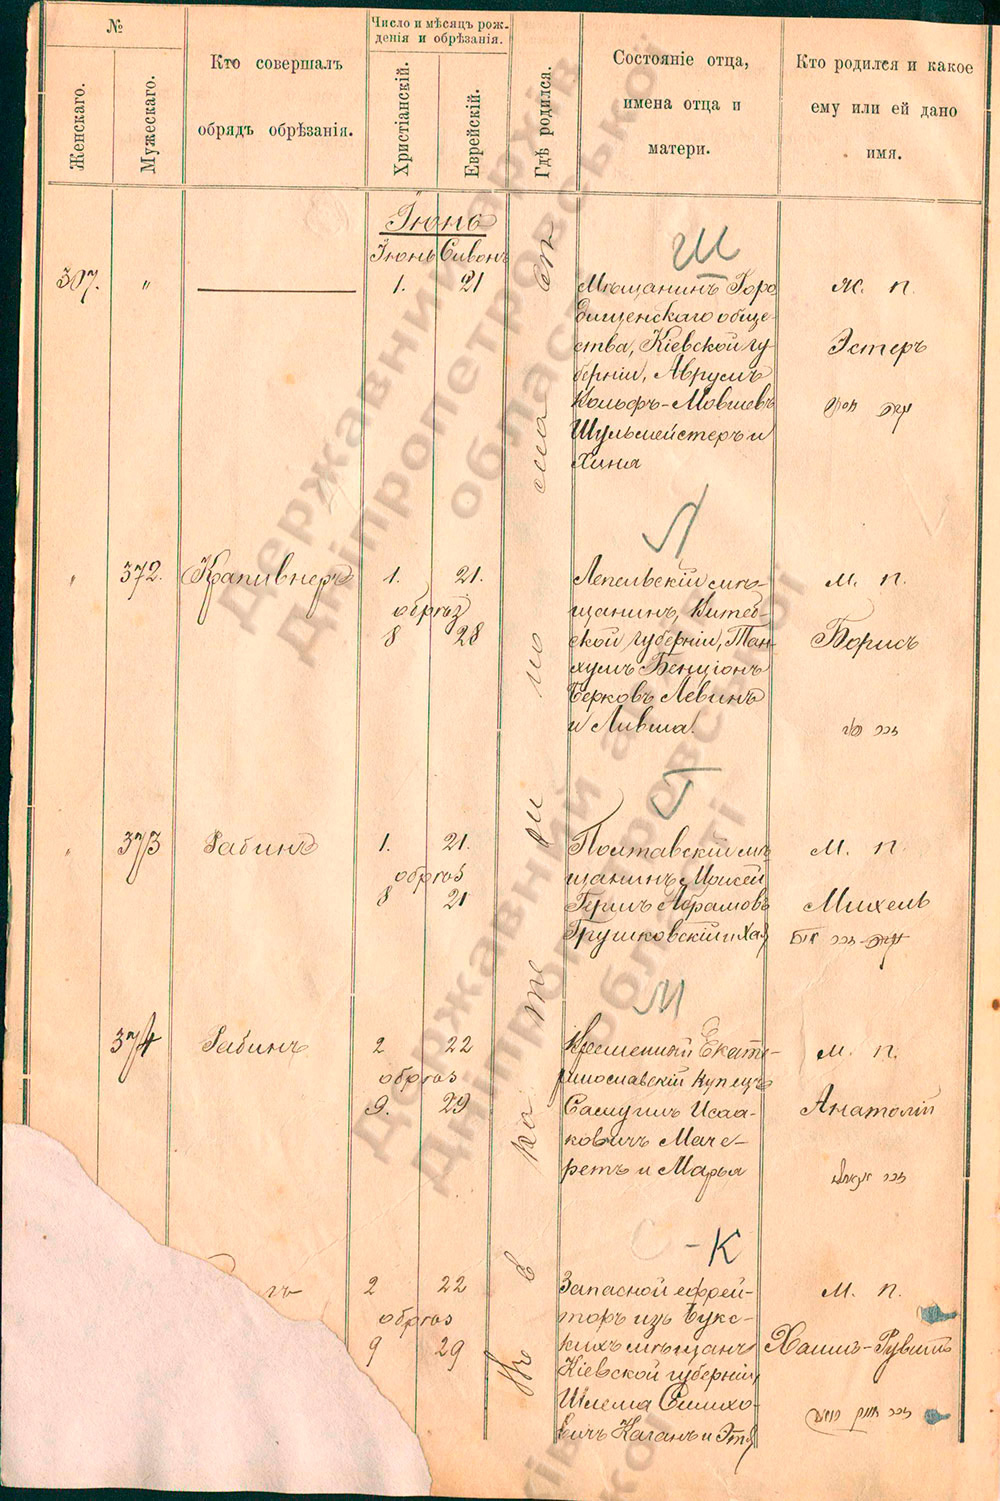 №
Женскаго.
Мужескаго.
Кто совершалъ
обрядъ обрѣзанія.
Число и мѣсяцъ рож-
денія и обрѣзанія.
Христіанскій.
Еврейскій.
Гдѣ родился.
Состояніе отца,
имена отца и
матери.
Кто родился и какое
ему или ей дано
имя.
Іюнь
Іюнь Сивонъ
Ш
307. " 1. 21
Мѣщанинъ Горо
дищенскаго обще-
ства, Кіевской гу-
берніи, Аврумъ
Вольфъ-Мовшевъ
Шульмейстеръ и
Хина
Ж. п.
Эстеръ
Л
" 372. Крапивнеръ 1. 21.
обрѣз
8 28
Лепельскій мѣ-
щанинъ, Витеб-
ской губерніи, Тан-
хумъ Бенціонъ
Берковъ Левинъ
и Ливша.
м. п.
Борисъ
Г
" 373 Рабинъ 1. 21.
обрѣз
8 21
Полтавскій мѣ
щанинъ Моисей
Гершъ Абрамовъ
Грушковскій и Хая
м. п.
Михель
М
374 Рабинъ 2 22
обрѣз
9. 29
Временный Екате-
ринославскій Купецъ
Самуилъ Исаа-
ковичъ Маче-
ретъ и Марья
м. п.
Анатолій
С - К
2 22
обрѣз
9 29
Запасной ефрей-
торъ изъ Букс-
кихъ мѣщанъ
Кіевской губерніи,
Шлема Симхо-
вичъ Каганъ и Этя
м. п.
Хаимъ-Рувинъ
Державний архів
Дніпропетровської
області
Державний архів
Дніпропетровської
області